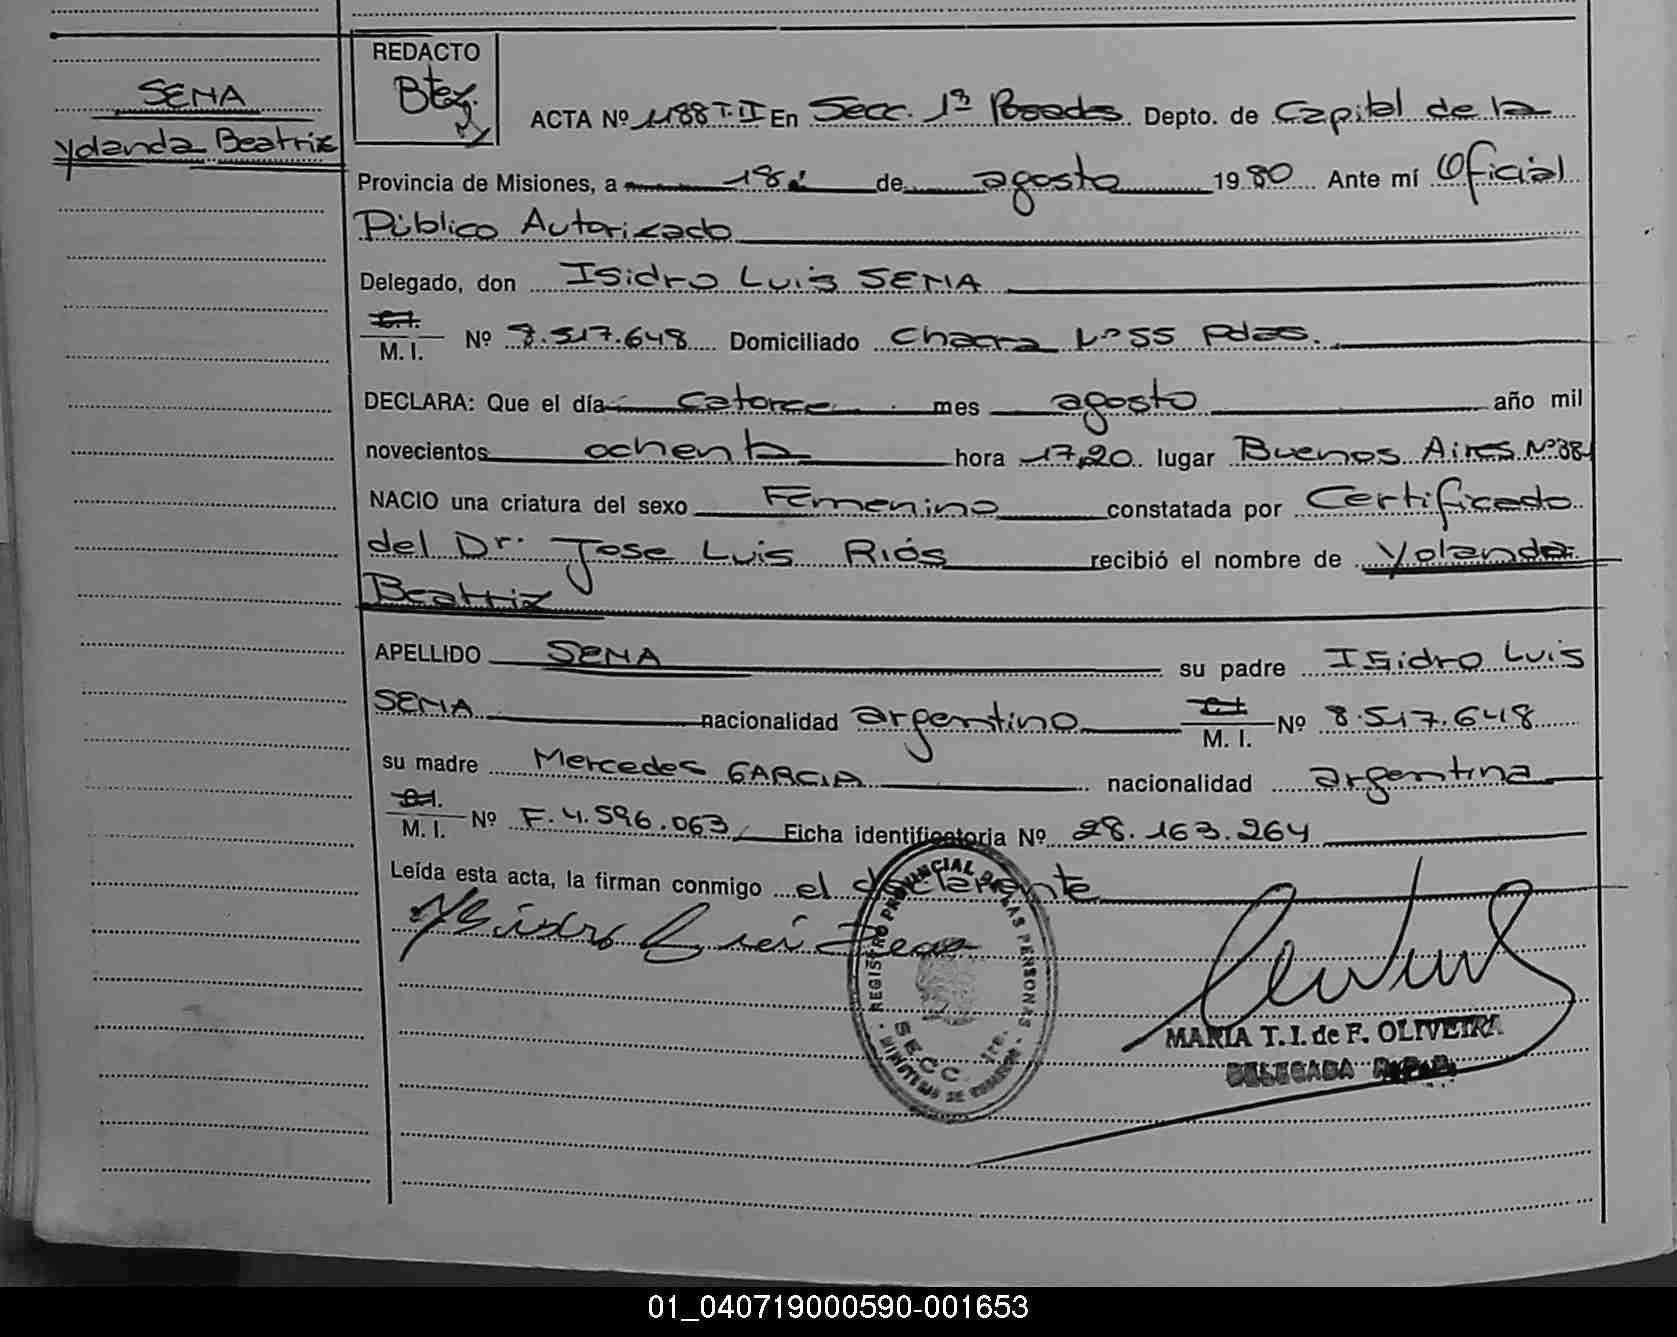 SENA
Yolanda Beatriz
REDACTO
Btez.
ACTA Nº 1188 T-II En Secc. 1ª Posadas Depto. de Capital de la
Provincia de Misiones, a 18 de agosto 1980 Ante mí Oficial
Público Autorizado
Delegado, don Isidro Luis SENA
C.I.
M. I. Nº 8.517.648 Domiciliado Chacra Nº 55 Pdas.
DECLARA: Que el día catorce mes agosto año mil
novecientos ochenta hora 17,20 lugar Buenos Aires Nº 384
NACIO una criatura del sexo Femenino constatada por Certificado
del Dr. Jose Luis Riós recibió el nombre de Yolanda
Beatriz
APELLIDO SENA su padre Isidro Luis
SENA nacionalidad argentino C.I. M. I. Nº 8.517.648
su madre Mercedes GARCIA nacionalidad argentina
C.I.
M. I. Nº F.4.596.063 Ficha identificatoria Nº 28.163.264
Leída esta acta, la firman conmigo el declarante
Isidro Luis Sena
REGISTRO PROVINCIAL DE LAS PERSONAS
SECC. 1ra.
MINISTERIO DE GOBIERNO
MARIA T. I. de F. OLIVEIRA
DELEGADA R.P.P.
01_040719000590-001653